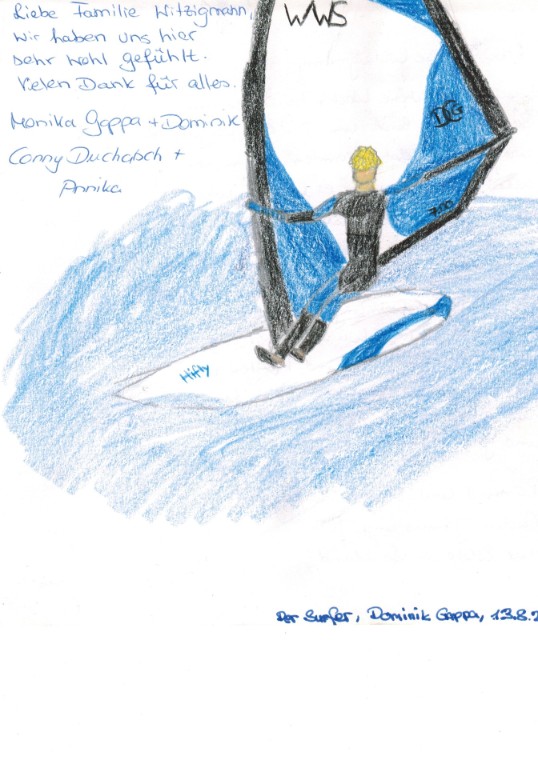 Liebe Familie Witzigmann,
wir haben uns hier
sehr wohl gefühlt.
Vielen Dank für alles.
Monika Gappa + Dominik
Conny Duchatsch +
Annika
WWS
DG
700
Hifly
Der Surfer, Dominik Gappa, 13.8.2